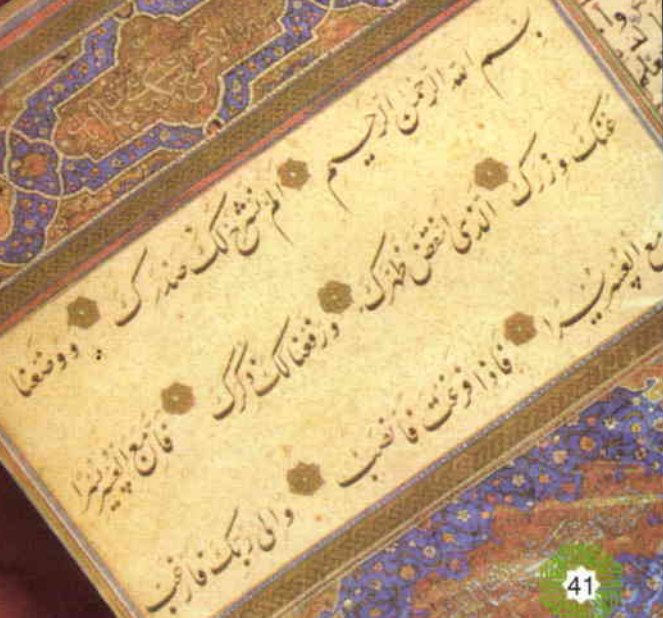 بسم الله الرحمن الرحيم الم نشرح لك صدرك ووضعنا
عنك وزرك الذى انقض ظهرك ورفعنا لك ذكرك فان مع العسر يسرا
مع العسر يسرا فاذا فرغت فانصب والى ربك فارغب
41